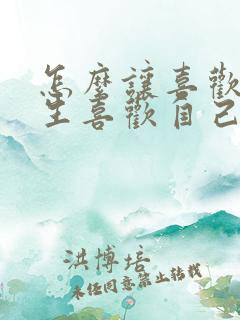 怎麼讓喜歡
生喜歡自己
洪博培
未经同意禁止转载